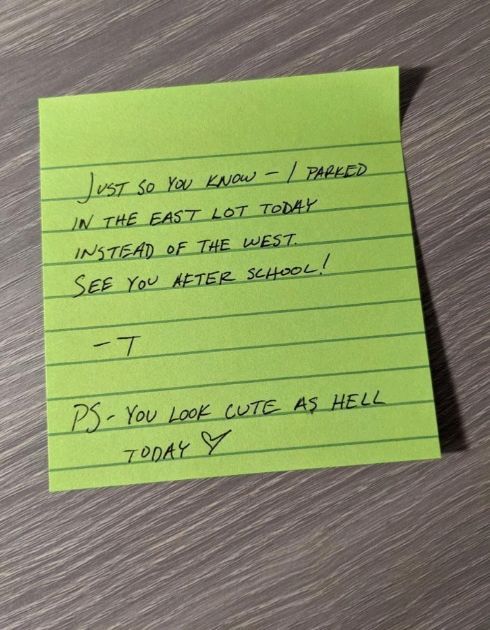 JUST SO YOU KNOW - I PARKED
IN THE EAST LOT TODAY
INSTEAD OF THE WEST.
SEE YOU AFTER SCHOOL!
- T
PS - YOU LOOK CUTE AS HELL
TODAY ♡